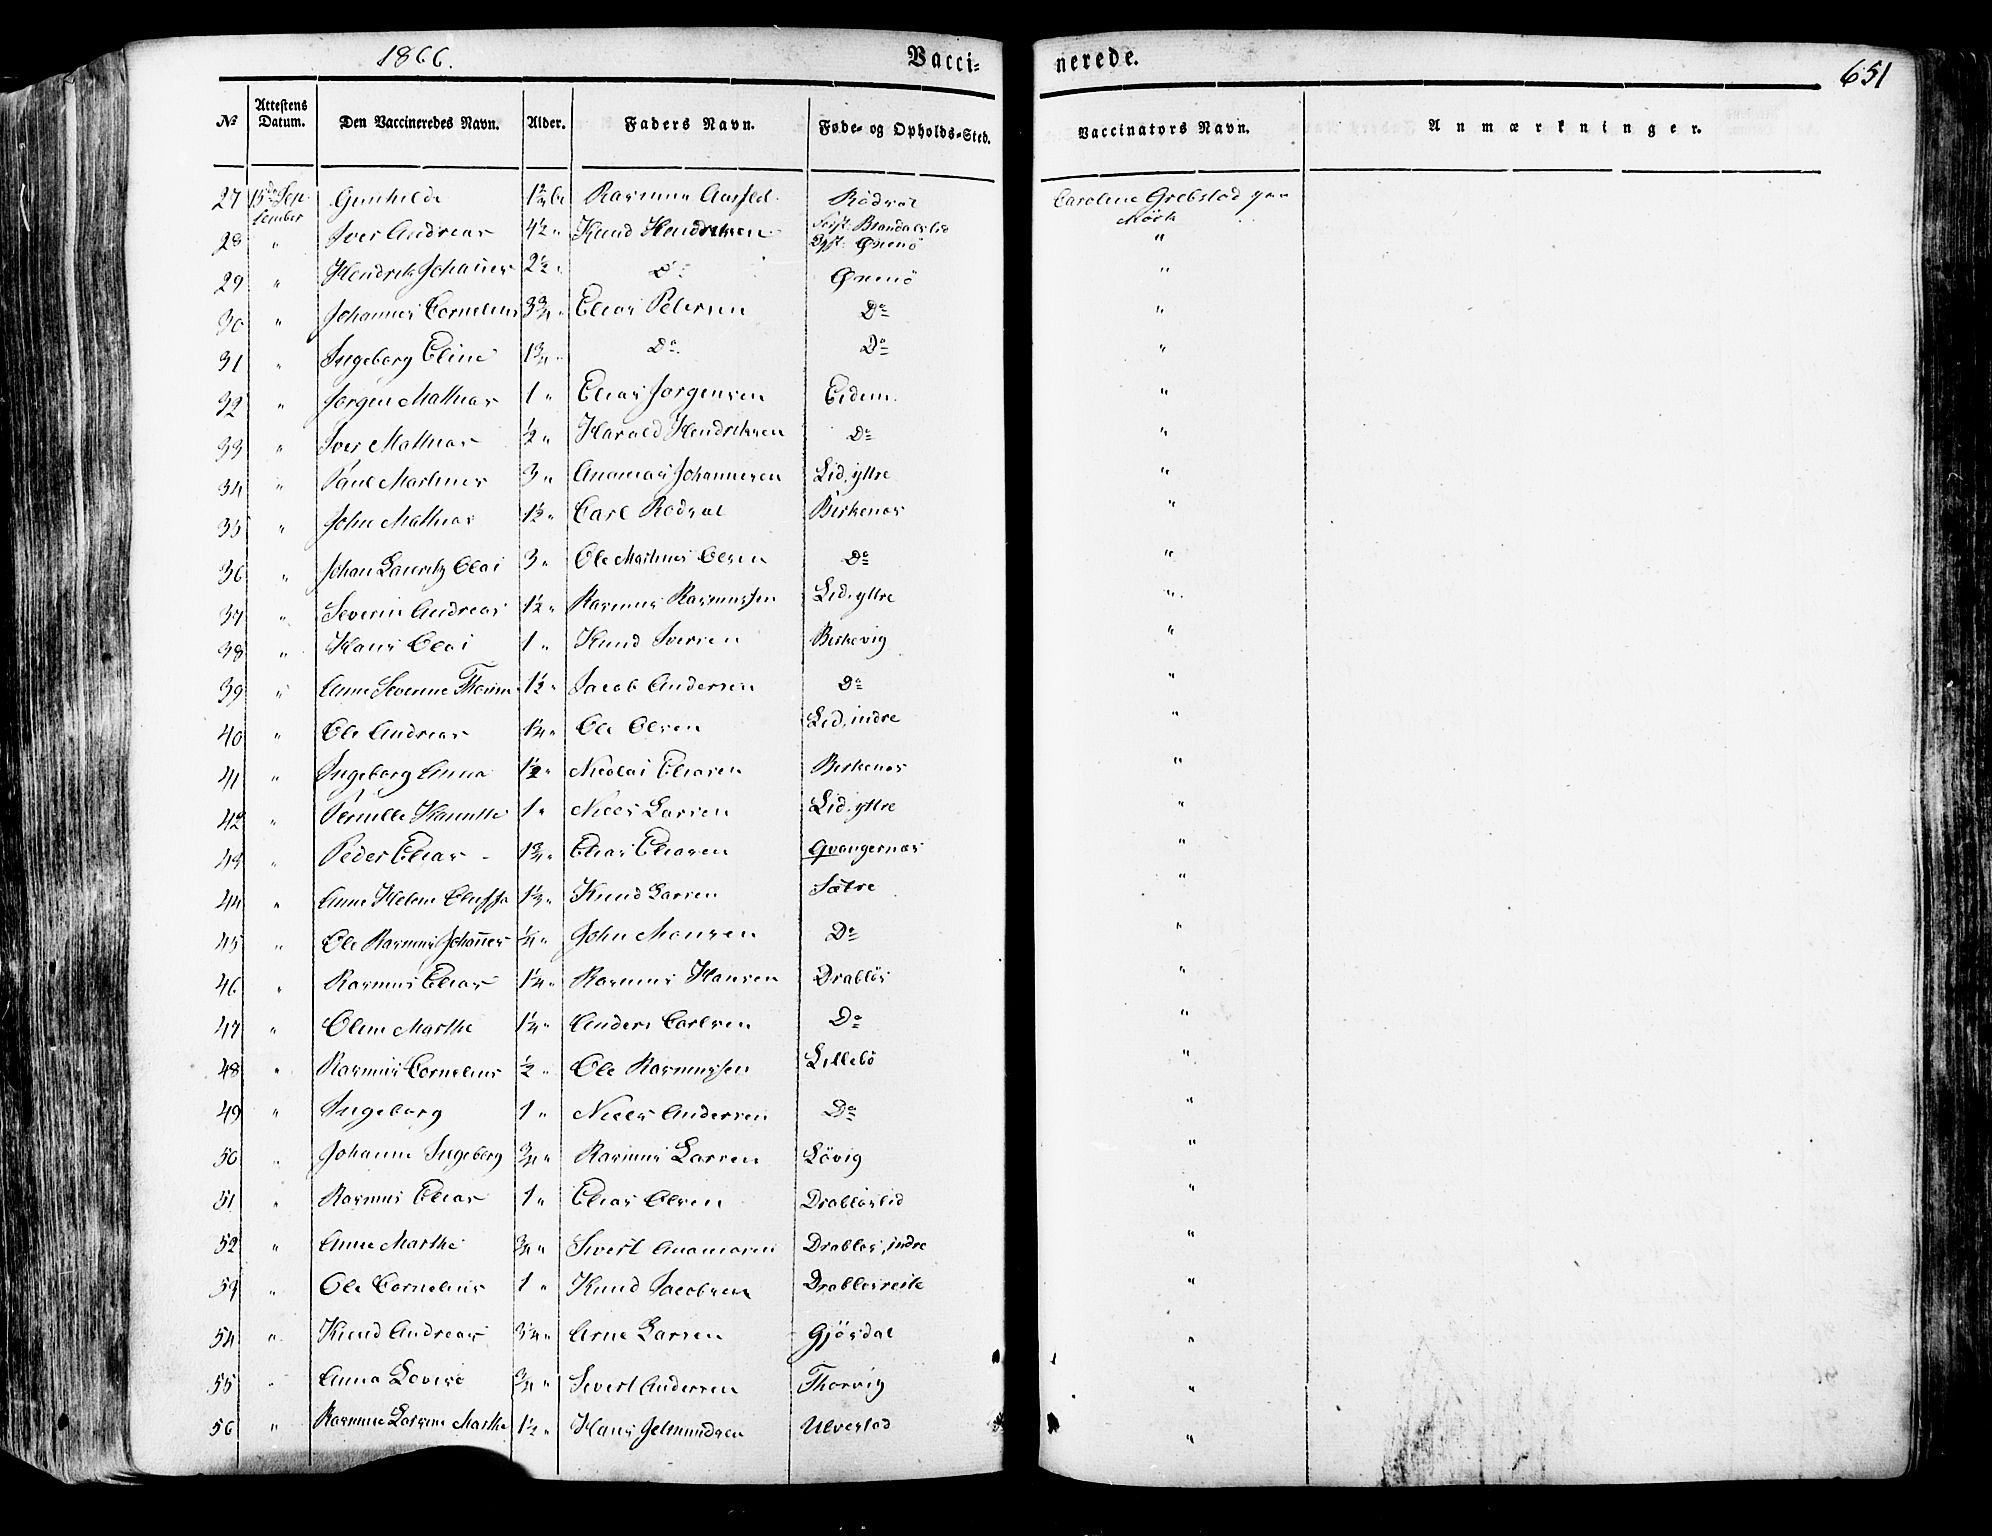 1866. Vaccinerede. 651
No Attestens Datum. Den Vaccineredes Navn. Alder. Faders Navn. Føde- og Opholds-Sted. Vaccinators Navn. Anmærkninger.
27 15de September Gunhilde Rasmus Aarseld. Rödsæt Caroline Grebstad paa
28 " Iver Andreas 4½ " Knud Hendriksen Brandalslid Øxenö "
29 " Hendrik Johannes 2½ " Do Øxenö "
30 " Johannes Cornelius 3¾ " Elias Petersen Do "
31 " Ingeborg Eline 1¾ " Do Do "
32 " Jørgen Mathias 1 " Elias Jørgensen Eidem. "
33 " Iver Mathias ½ " Harald Hendriksen Do "
34 " Paul Martinus 3 " Anamas Johannesen Lid, yttre "
35 " John Mathias 1½ " Carl Rödsæt Birkenes "
36 " Johan Lauritz Olai 3 " Ole Martinus Olsen Do "
37 " Severin Andreas 1½ " Rasmus Rasmussen Lid, yttre "
38 " Hans Olai 1 " Knud Iversen Birkevig "
39 " Anne Severine 1½ " Jacob Andersen Do "
40 " Ole Andreas 1¼ " Ole Olsen Lid, indre "
41 " Ingeborg Anna 1½ " Nicolai Eliasen Birkenes "
42 " Pernille Hanntte 1 " Niels Larsen Lid, yttre "
43 " Peder Elias 1¾ " Elias Eliasen Qvangernæs "
44 " Anne Helene Oluffa 1½ " Knud Larsen Sætre "
45 " Ole Rasmus Johannes ¼ " John Monsen Do "
46 " Rasmus Elias 1¼ " Rasmus Hansen Drabløs "
47 " Oline Marthe 1¼ " Anders Carlsen Do "
48 " Rasmus Cornelius ½ " Ole Rasmussen Lillebö "
49 " Ingeborg 1 " Niels Andersen Do "
50 " Johanne Ingeborg ¾ " Rasmus Larsen Lövig "
51 " Rasmus Elias 1 " Elias Olsen Drabløslid "
52 " Anne Marthe ¾ " Sivert Anamasen Drabløs, indre "
53 " Ole Cornelius 1 " Knud Jacobsen Drabløsreite "
54 " Knud Andreas 3¼ " Arne Larsen Gjösdal "
55 " Anna Lovise ¾ " Sivert Andersen Thorvig "
56 " Rasmine Marthe 1½ " Hans Jetmundsen Ulvestad "